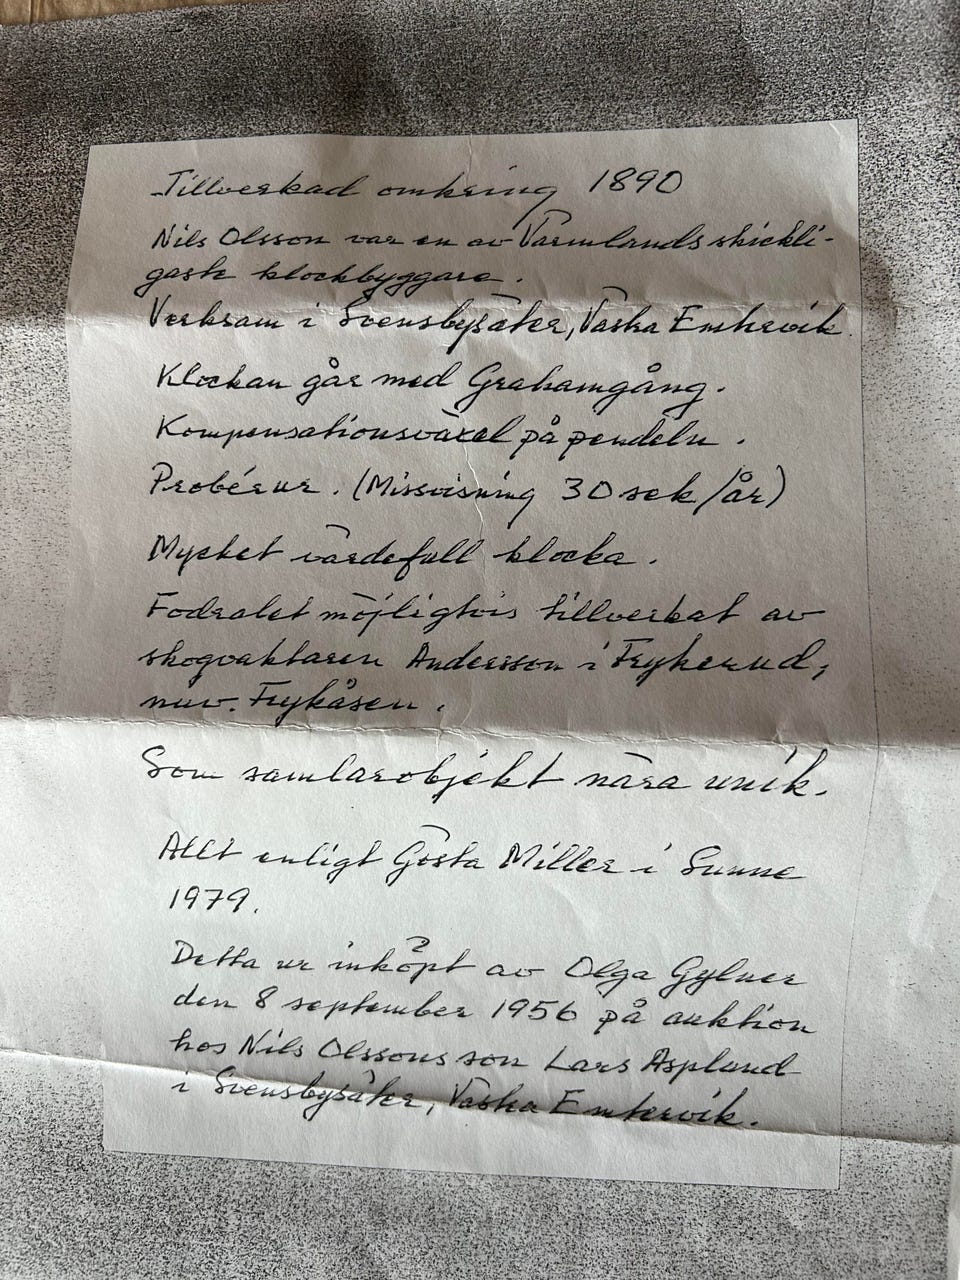 Tillverkad omkring 1890
Nils Olsson var en av Värmlands skickli-
gaste klockbyggare.
Verksam i Svensbysäter, Västra Emtervik.
Klockan går med Grahamgång.
Kompensationsväxel på pendeln.
Probérur. (Missvisning 30 sek/år)
Mycket värdefull klocka.
Fodralet möjligtvis tillverkat av
skogvaktaren Andersson i Frykerud,
nuv. Frykåsen.
Som samlarobjekt nära unik.
Allt enligt Gösta Miller i Sunne
1979.
Detta ur inköpt av Olga Gylner
den 8 september 1956 på auktion
hos Nils Olssons son Lars Asplund
i Svensbysäter, Västra Emtervik.